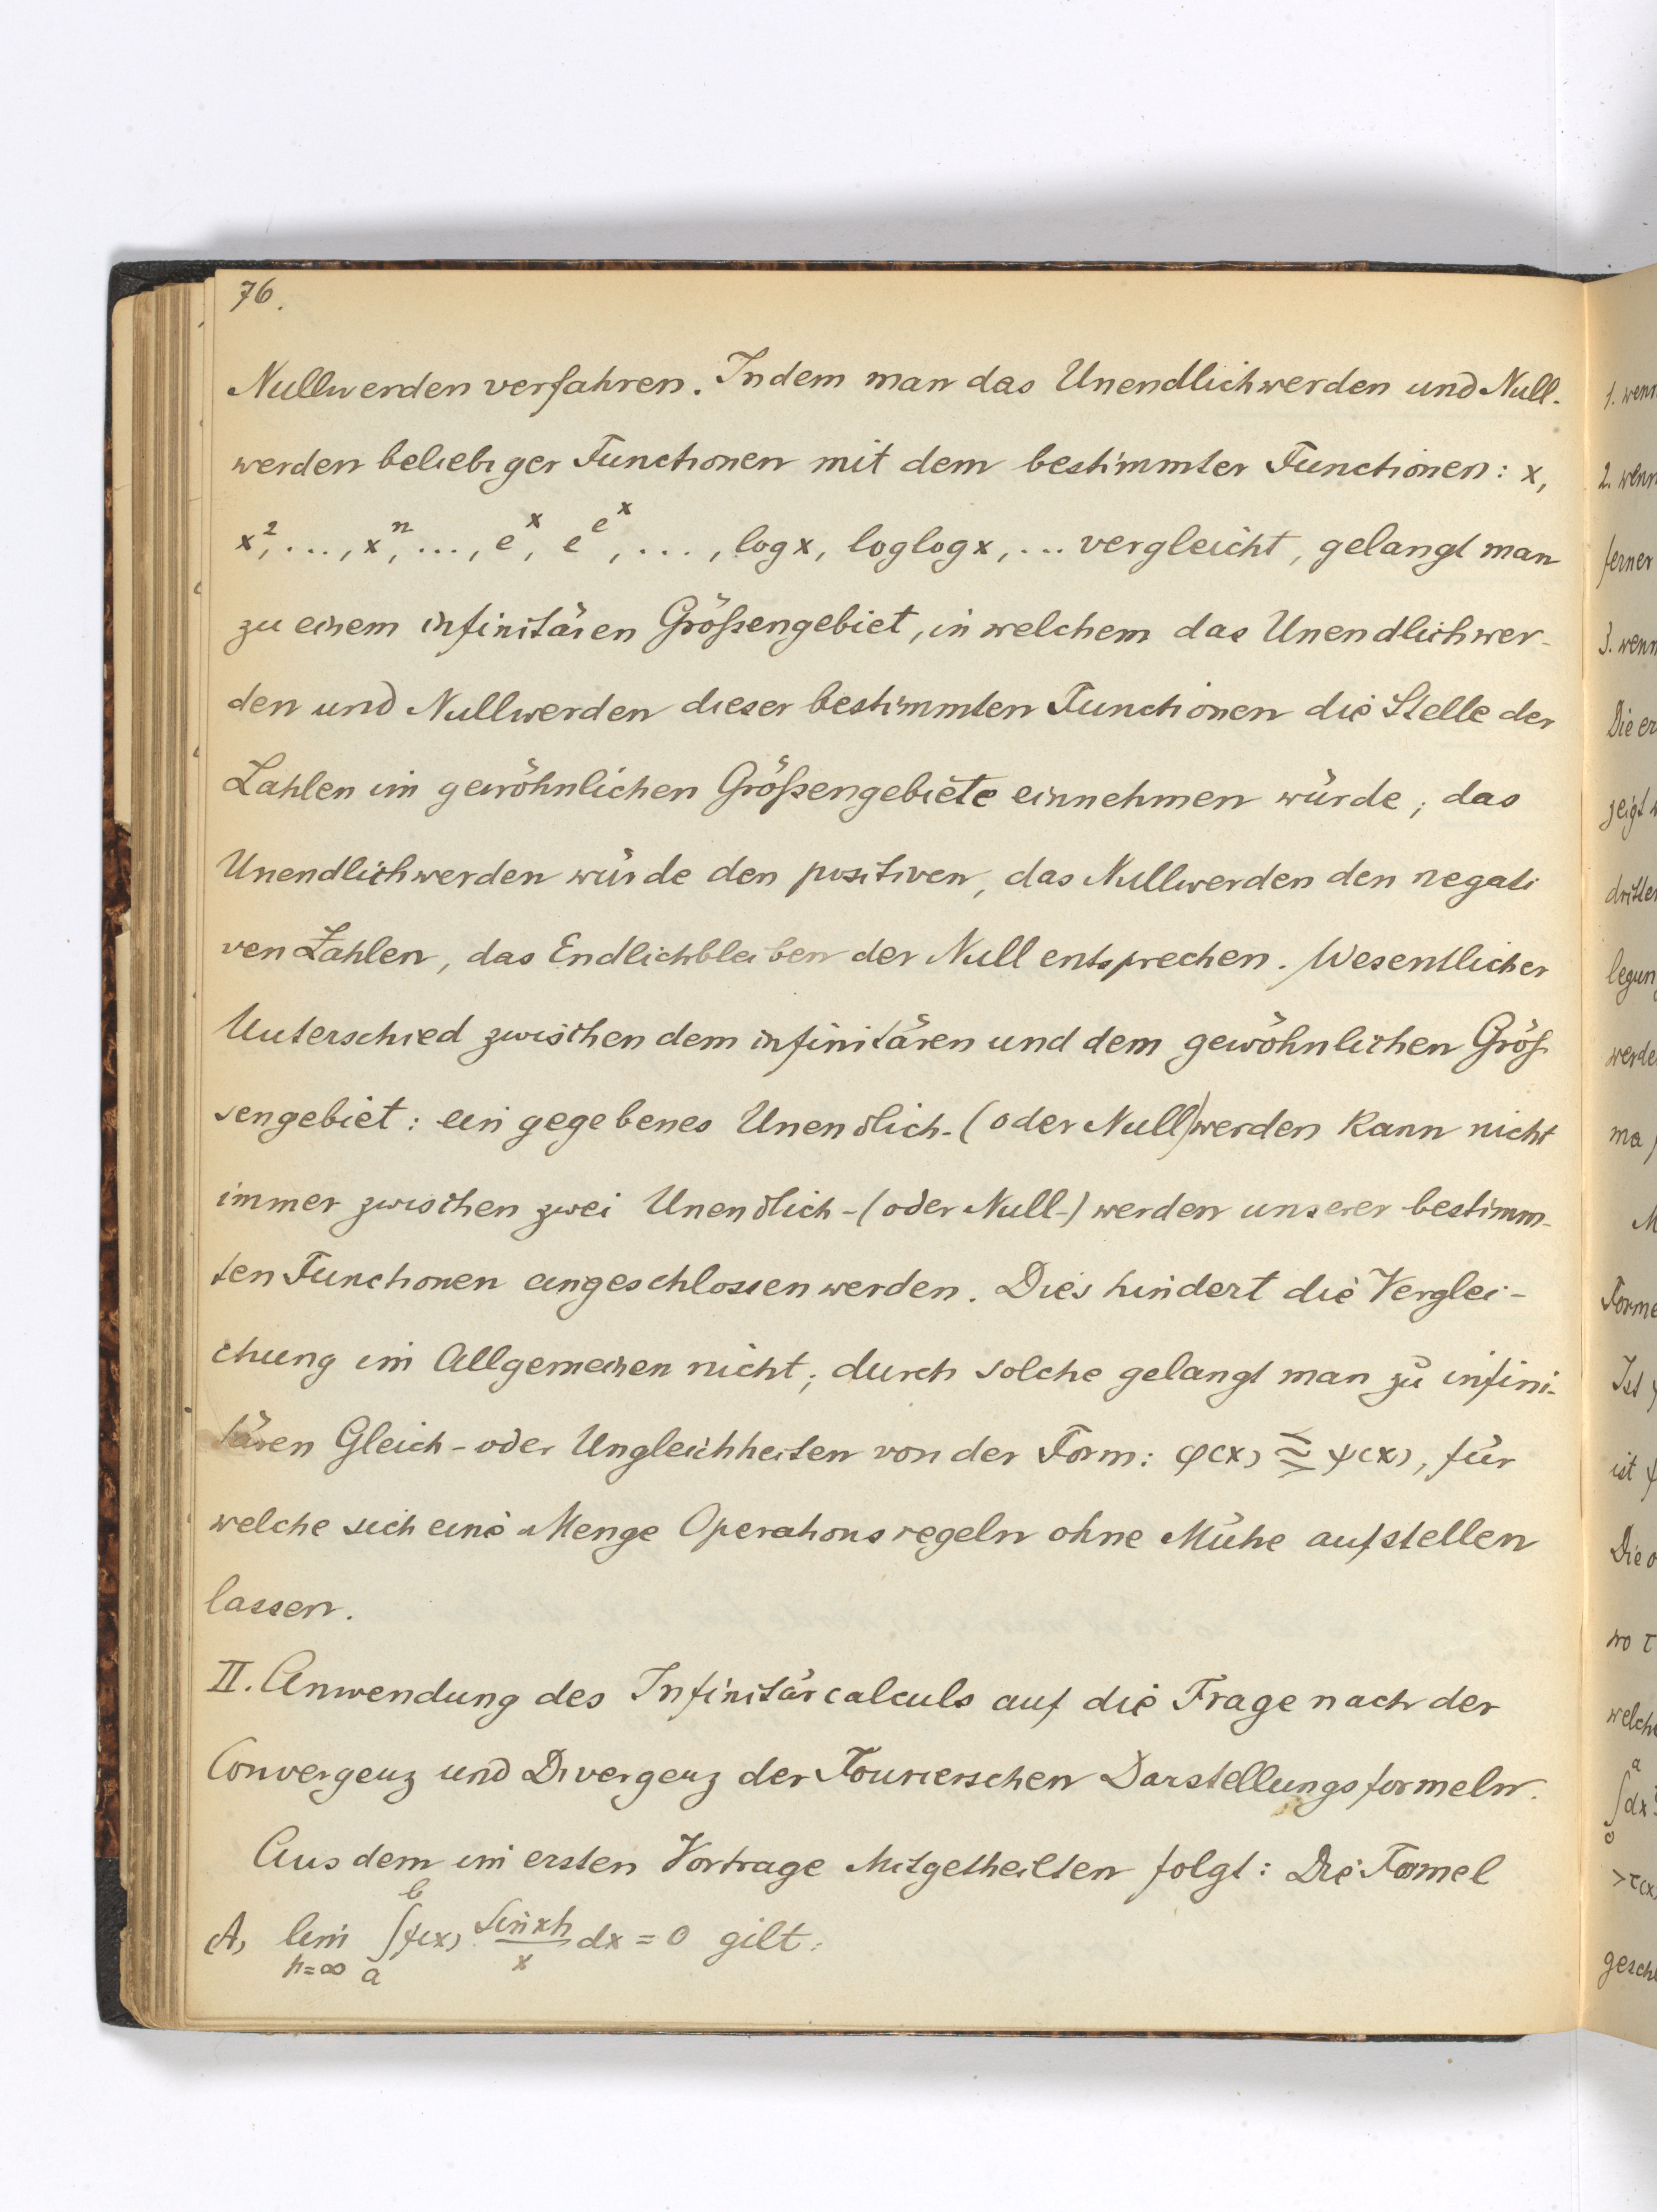 76.
Nullwerden verfahren. Indem man das Unendlichwerden und Null-
werden beliebiger Functionen mit dem bestimmter Functionen: x,
x², ..., xⁿ, ..., e^x, e^e^x, ..., log x, loglog x, ... vergleicht, gelangt man
zu einem infinitären Größengebiet, in welchem das Unendlichwer-
den und Nullwerden dieser bestimmten Functionen die Stelle der
Zahlen im gewöhnlichen Größengebiete einnehmen würde; das
Unendlichwerden würde den positiven, das Nullwerden den negati
ven Zahlen, das Endlichbleiben der Null entsprechen. Wesentlicher
Unterschied zwischen dem infinitären und dem gewöhnlichen Größ
sengebiet: ein gegebenes Unendlich-(oder Null)werden kann nicht
immer zwischen zwei Unendlich-(oder Null-)werden unserer bestimm-
ten Functionen eingeschlossen werden. Dies hindert die Verglei-
chung im Allgemeinen nicht; durch solche gelangt man zu infini-
tären Gleich- oder Ungleichheiten von der Form: φ(x) ⪋ ψ(x), für
welche sich eine Menge Operationsregeln ohne Mühe aufstellen
lassen.
II. Anwendung des Infinitärcalculs auf die Frage nach der
Convergenz und Divergenz der Fourierschen Darstellungsformeln.
Aus dem im ersten Vortrage Mitgetheilten folgt: Die Formel
A) lim_{h=∞} ∫_a^b f(x) (sin xh)/x dx = 0 gilt:
1. wenn
2. wenn
ferner
3. wenn
Die er
zeigt
dritten
legun
werde
ma
M
Forme
Ist
ist
Die
wo τ
welche
∫_0^a dx
> τ(x)
gesch